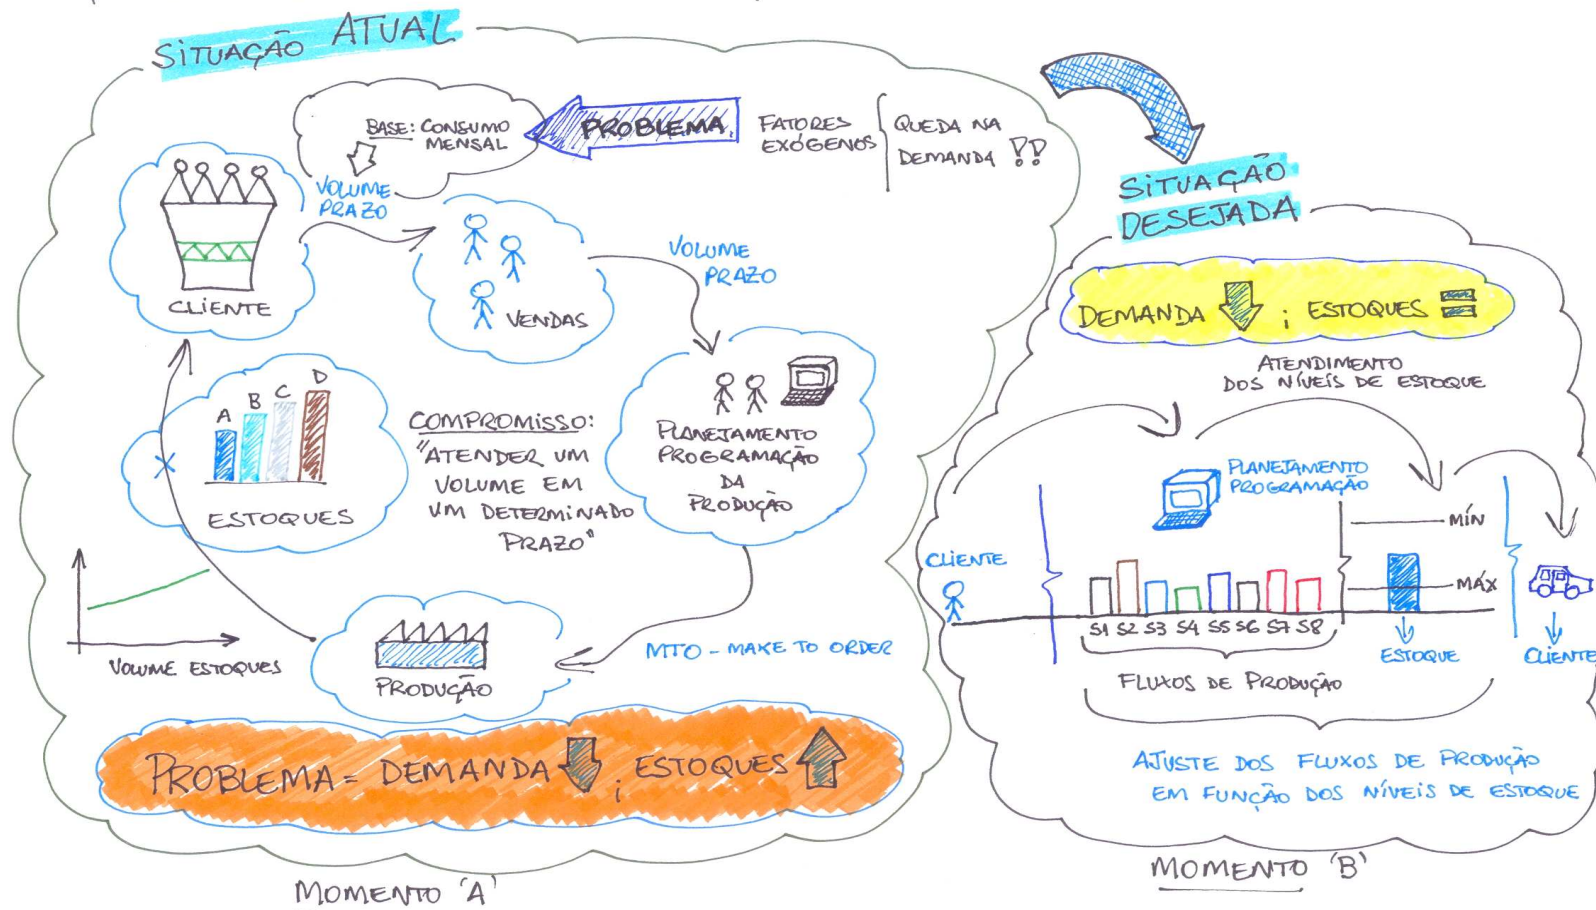 SITUAÇÃO ATUAL
BASE: CONSUMO
MENSAL
PROBLEMA
FATORES
EXÓGENOS
QUEDA NA
DEMANDA !!
VOLUME
PRAZO
CLIENTE
VENDAS
VOLUME
PRAZO
A B C D
ESTOQUES
COMPROMISSO:
"ATENDER UM
VOLUME EM
UM DETERMINADO
PRAZO"
PLANEJAMENTO
PROGRAMAÇÃO
DA
PRODUÇÃO
VOLUME ESTOQUES
PRODUÇÃO
MTO - MAKE TO ORDER
PROBLEMA = DEMANDA ; ESTOQUES
MOMENTO 'A'
SITUAÇÃO
DESEJADA
DEMANDA ; ESTOQUES
ATENDIMENTO
DOS NÍVEIS DE ESTOQUE
PLANEJAMENTO
PROGRAMAÇÃO
MÍN
CLIENTE
MÁX
S1 S2 S3 S4 S5 S6 S7 S8
ESTOQUE
CLIENTE
FLUXOS DE PRODUÇÃO
AJUSTE DOS FLUXOS DE PRODUÇÃO
EM FUNÇÃO DOS NÍVEIS DE ESTOQUE
MOMENTO 'B'